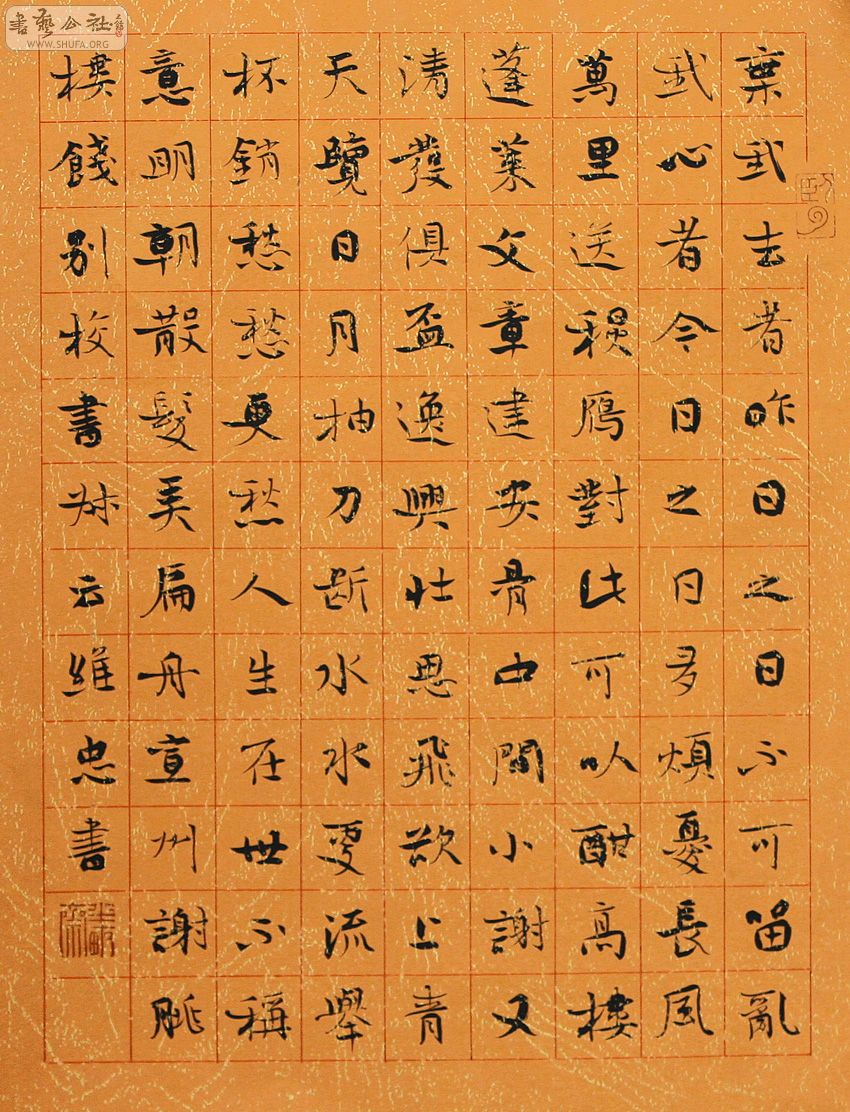 書藝公社
WWW.SHUFA.ORG
棄我去者昨日之日不可留亂
我心者今日之日多煩憂長風
萬里送秋鴈對此可以酣高樓
蓬萊文章建安骨中間小謝又
清發俱盃逸興壯思飛欲上青
天覽日月抽刀斷水水更流舉
杯銷愁愁更愁人生在世不稱
意明朝散髮弄扁舟宣州謝朓
樓餞別校書叔云維忠書